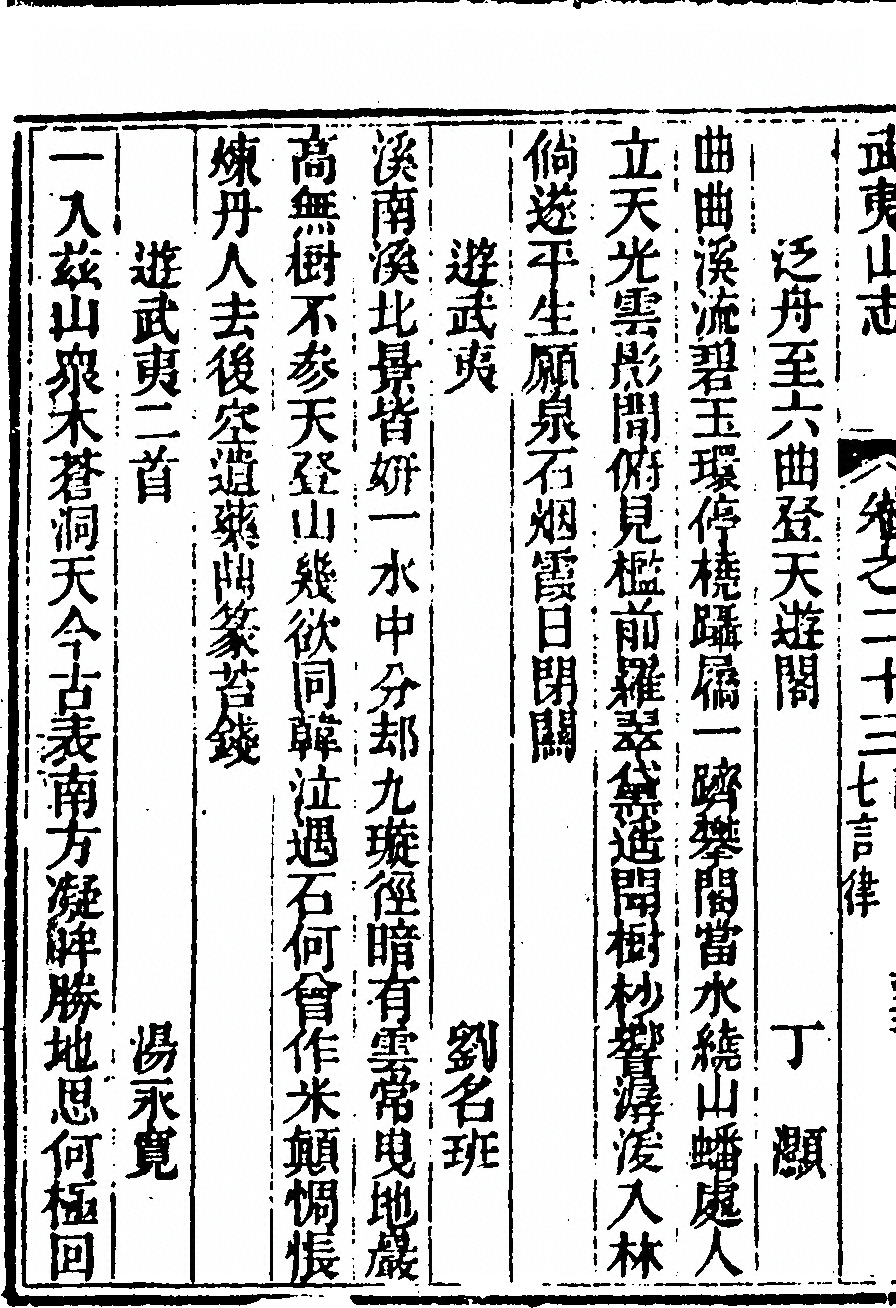 武夷山志 卷之二十三 七言律
泛舟至六曲登天遊閣 丁灝
曲曲溪流碧玉環停橈躡屩一躋攀閣當水繞山蟠處人
立天光雲影間俯見檻前羅翠黛遙聞樹杪響潺湲入林
倘遂平生願泉石烟霞日閉關
遊武夷 劉名班
溪南溪北景皆妍一水中分却九璇徑暗有雲常曳地巖
高無樹不參天登山幾欲同韓泣遇石何曾作米顛惆悵
煉丹人去後空遺藥臼篆苔錢
遊武夷二首 湯永寬
一入茲山衆木蒼洞天今古表南方凝眸勝地思何極回